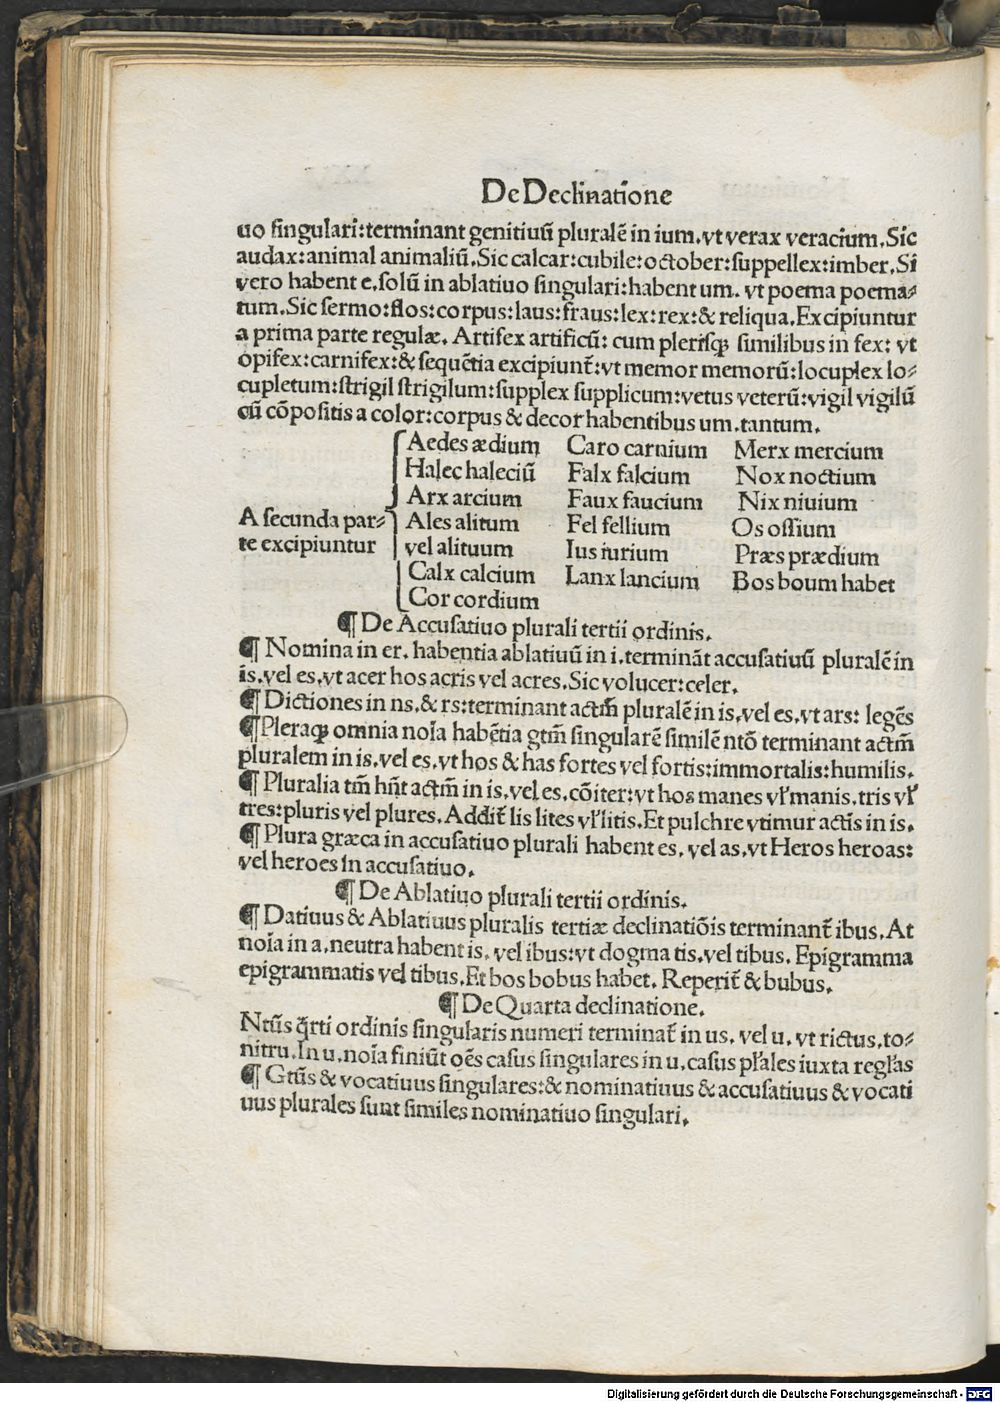 De Declinatione
uo ſingulari:terminant genitiuū pluralē in ium.vt verax veracium.Sic
audax:animal animaliū.Sic calcar:cubile:october:ſuppellex:imber.Si
vero habent e.ſolū in ablatiuo ſingulari:habent um. vt poema poema⸗
tum.Sic ſermo:flos:corpus:laus:fraus:lex:rex:& reliqua.Excipiuntur
a prima parte regulæ. Artifex artificū: cum pleriſqꝫ ſimilibus in fex: vt
opifex:carnifex:& ſequētia excipiunt᷑:vt memor memorū:locuplex lo⸗
cupletum:ſtrigil ſtrigilum:ſupplex ſupplicum:vetus veterū:vigil vigilū
cū cōpoſitis a color:corpus & decor habentibus um.tantum.
Aedes ædium Caro carnium Merx mercium
Halec haleciū Falx falcium Nox noctium
Arx arcium Faux faucium Nix niuium
A ſecunda par⸗ Ales alitum Fel fellium Os oſſium
te excipiuntur vel alituum Ius iurium Præs prædium
Calx calcium Lanx lancium Bos boum habet
Cor cordium
¶ De Accuſatiuo plurali tertii ordinis.
¶ Nomina in er. habentia ablatiuū in i.termināt accuſatiuū pluralē in
is.vel es.vt acer hos acris vel acres.Sic volucer:celer.
¶ Dictiones in ns.& rs:terminant actm̄ pluralē in is.vel es.vt ars: legēs
¶ Pleraqꝫ omnia noīa habētia gtm̄ ſingularē ſimilē ntō terminant actm̄
pluralem in is.vel es.vt hos & has fortes vel fortis:immortalis:humilis.
¶ Pluralia tm̄ hn̄t actm̄ in is.vel es.cōiter:vt hos manes vꝉ manis.tris vꝉ
tres:pluris vel plures. Addit᷑ lis lites vꝉ litis.Et pulchre vtimur actīs in is.
¶ Plura græca in accuſatiuo plurali habent es. vel as.vt Heros heroas:
vel heroes in accuſatiuo.
¶ De Ablatiuo plurali tertii ordinis.
¶ Datiuus & Ablatiuus pluralis tertiæ declinatiōis terminant᷑ ibus.At
noīa in a.neutra habent is. vel ibus:vt dogma tis.vel tibus. Epigramma
epigrammatis vel tibus.Et bos bobus habet. Reperit᷑ & bubus.
¶ De Quarta declinatione.
Ntūs q̄rti ordinis ſingularis numeri terminat᷑ in us. vel u. vt rictus.to⸗
nitru.In u.noīa finiūt oēs caſus ſingulares in u.caſus pꝉales iuxta regꝉas
¶ Gtūs & vocatiuus ſingulares:& nominatiuus & accuſatiuus & vocati
uus plurales ſunt ſimiles nominatiuo ſingulari.
Digitalisierung gefördert durch die Deutsche Forschungsgemeinschaft - DFG